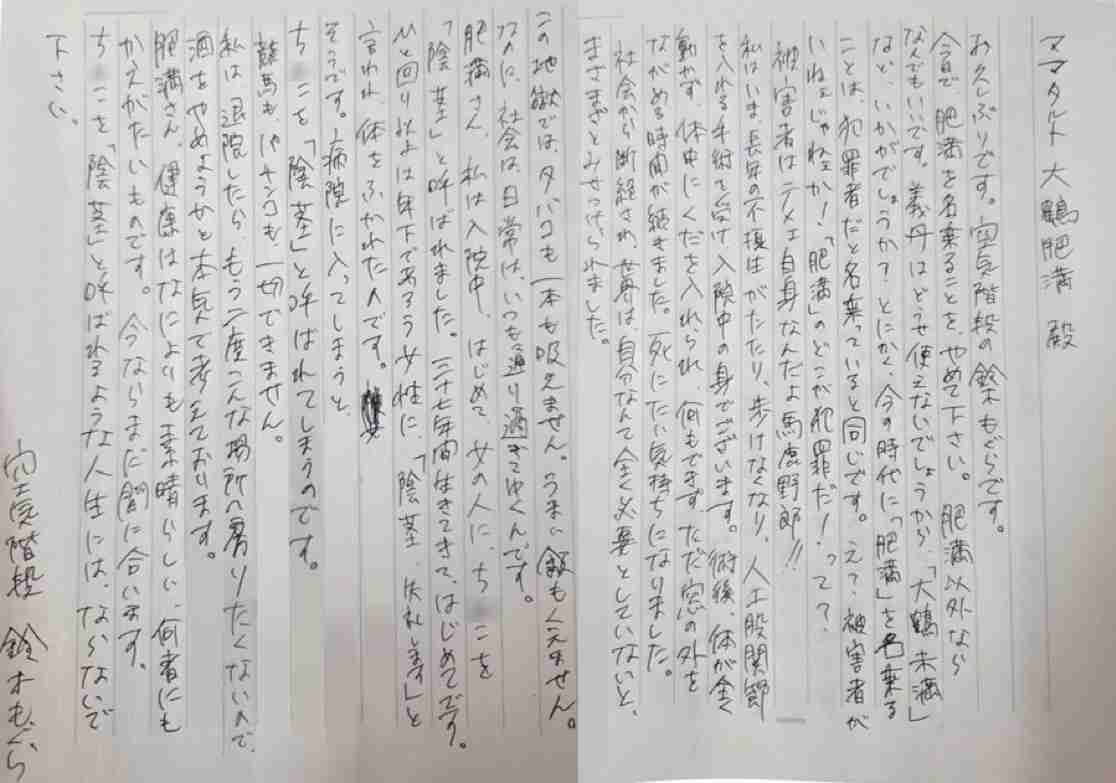 ママタルト 大鶴肥満 殿
お久しぶりです。空気階段の鈴木もぐらです。
今日で、肥満を名乗ることを、やめて下さい。肥満以外なら
なんでもいいです。義丹はどうせ使えないでしょうから、「大鶴未満」
など、いかがでしょうか？とにかく、今の時代に「肥満」を名乗る
ことは、犯罪者だと名乗っていると同じです。え？被害者が
いねェじゃねェか！「肥満」のどこが犯罪だ！って？
被害者はテメェ自身なんだよ馬鹿野郎!!
私はいま、長年の不摂生がたたり、歩けなくなり、人工股関節
を入れる手術を受け入院中の身でございます。術後、体が全く
動かず、体中にくだを入れられ、何もできずただ窓の外を
ながめる時間が続きました。死にたい気持ちになりました。
社会から断絶され、世界は、自分なんて全く必要としていないと、
まざまざとみせつけられました。
この地獄ではタバコも一本も吸えません。うまい飯もくえません。
なのに、社会は、日常は、いつも通り過ぎてゆくんです。
肥満さん、私は入院中、はじめて、女の人に、ち こを
「陰茎」と呼ばれました。三十七年間生きてきて、はじめてです。
ひと回り以上は年下であろう女性に、「陰茎、失礼します」と
言われ、体をふかれたんです。
そうです。病院に入ってしまうと、
ち こを「陰茎」と呼ばれてしまうのです。
競馬もパチンコも一切できません。
私は退院したら、もう二度とこんな場所へ戻りたくないので、
酒をやめようかと本気で考えております。
肥満さん、健康はなによりも素晴らしい、何者にも
かえがたいものです。今ならまだ間に合います。
ち こを「陰茎」と呼ばれるような人生には、ならないで
下さい。
空気階段 鈴木もぐら